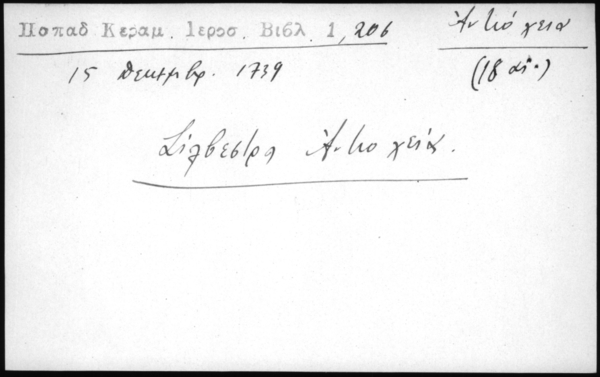 Παπαδ Κεραμ. Ιεροσ. Βιβλ. 1, 206
Ἀντιόχεια
15 Δεκεμβρ. 1739
(18 αἰ.)
Σίλβεστρα Ἀντιοχεία.